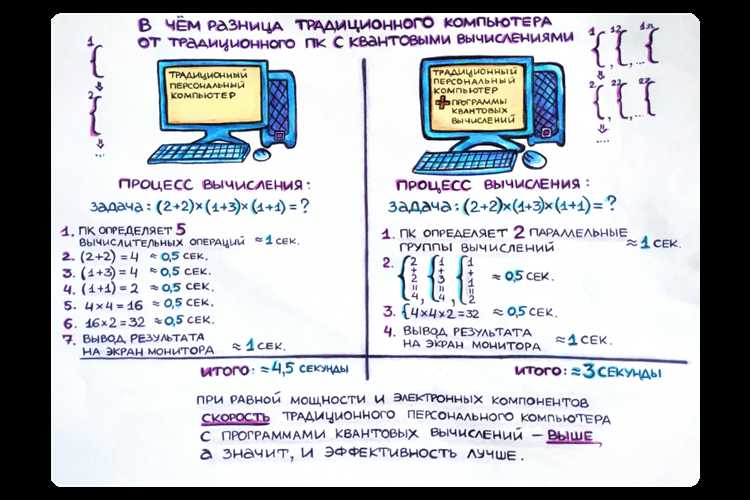 В ЧЁМ РАЗНИЦА ТРАДИЦИОННОГО КОМПЬЮТЕРА
ОТ ТРАДИЦИОННОГО ПК С КВАНТОВЫМИ ВЫЧИСЛЕНИЯМИ
1 {
2 {
...
ТРАДИЦИОННЫЙ
ПЕРСОНАЛЬНЫЙ
КОМПЬЮТЕР
ПРОЦЕСС ВЫЧИСЛЕНИЯ:
ЗАДАЧА: (2+2)×(1+3)×(1+1)=?
1. ПК ОПРЕДЕЛЯЕТ 5
ВЫЧИСЛИТЕЛЬНЫХ ОПЕРАЦИЙ ≈1 СЕК.
2. (2+2)=4 ≈0,5 СЕК.
3. (1+3)=4 ≈0,5 СЕК.
4. (1+1)=2 ≈0,5 СЕК.
5. 4×4=16 ≈0,5 СЕК.
6. 16×2=32 ≈0,5 СЕК.
7. ВЫВОД РЕЗУЛЬТАТА
НА ЭКРАН МОНИТОРА ≈1 СЕК.
ИТОГО: ≈4,5 СЕКУНДЫ
1 { , 12 { , ... 1n {
2 { , 22 { , ... 2n {
....
ТРАДИЦИОННЫЙ
ПЕРСОНАЛЬНЫЙ
КОМПЬЮТЕР
+ ПРОГРАММЫ
КВАНТОВЫХ
ВЫЧИСЛЕНИЙ
ПРОЦЕСС ВЫЧИСЛЕНИЯ:
ЗАДАЧА: (2+2)×(1+3)×(1+1)=?
1. ПК ОПРЕДЕЛЯЕТ 2 ПАРАЛЛЕЛЬНЫЕ
ГРУППЫ ВЫЧИСЛЕНИЙ ≈1 СЕК.
2. {2+2=4, {1+3=4, {1+1=2 ≈0,5 СЕК.
3. {4×4×2=32 ≈0,5 СЕК.
4. ВЫВОД РЕЗУЛЬТАТА
НА ЭКРАН МОНИТОРА ≈1 СЕК.
ИТОГО: ≈3 СЕКУНДЫ
ПРИ РАВНОЙ МОЩНОСТИ И ЭЛЕКТРОННЫХ КОМПОНЕНТОВ
СКОРОСТЬ ТРАДИЦИОННОГО ПЕРСОНАЛЬНОГО КОМПЬЮТЕРА
С ПРОГРАММАМИ КВАНТОВЫХ ВЫЧИСЛЕНИЙ – ВЫШЕ,
А ЗНАЧИТ, И ЭФФЕКТИВНОСТЬ ЛУЧШЕ.